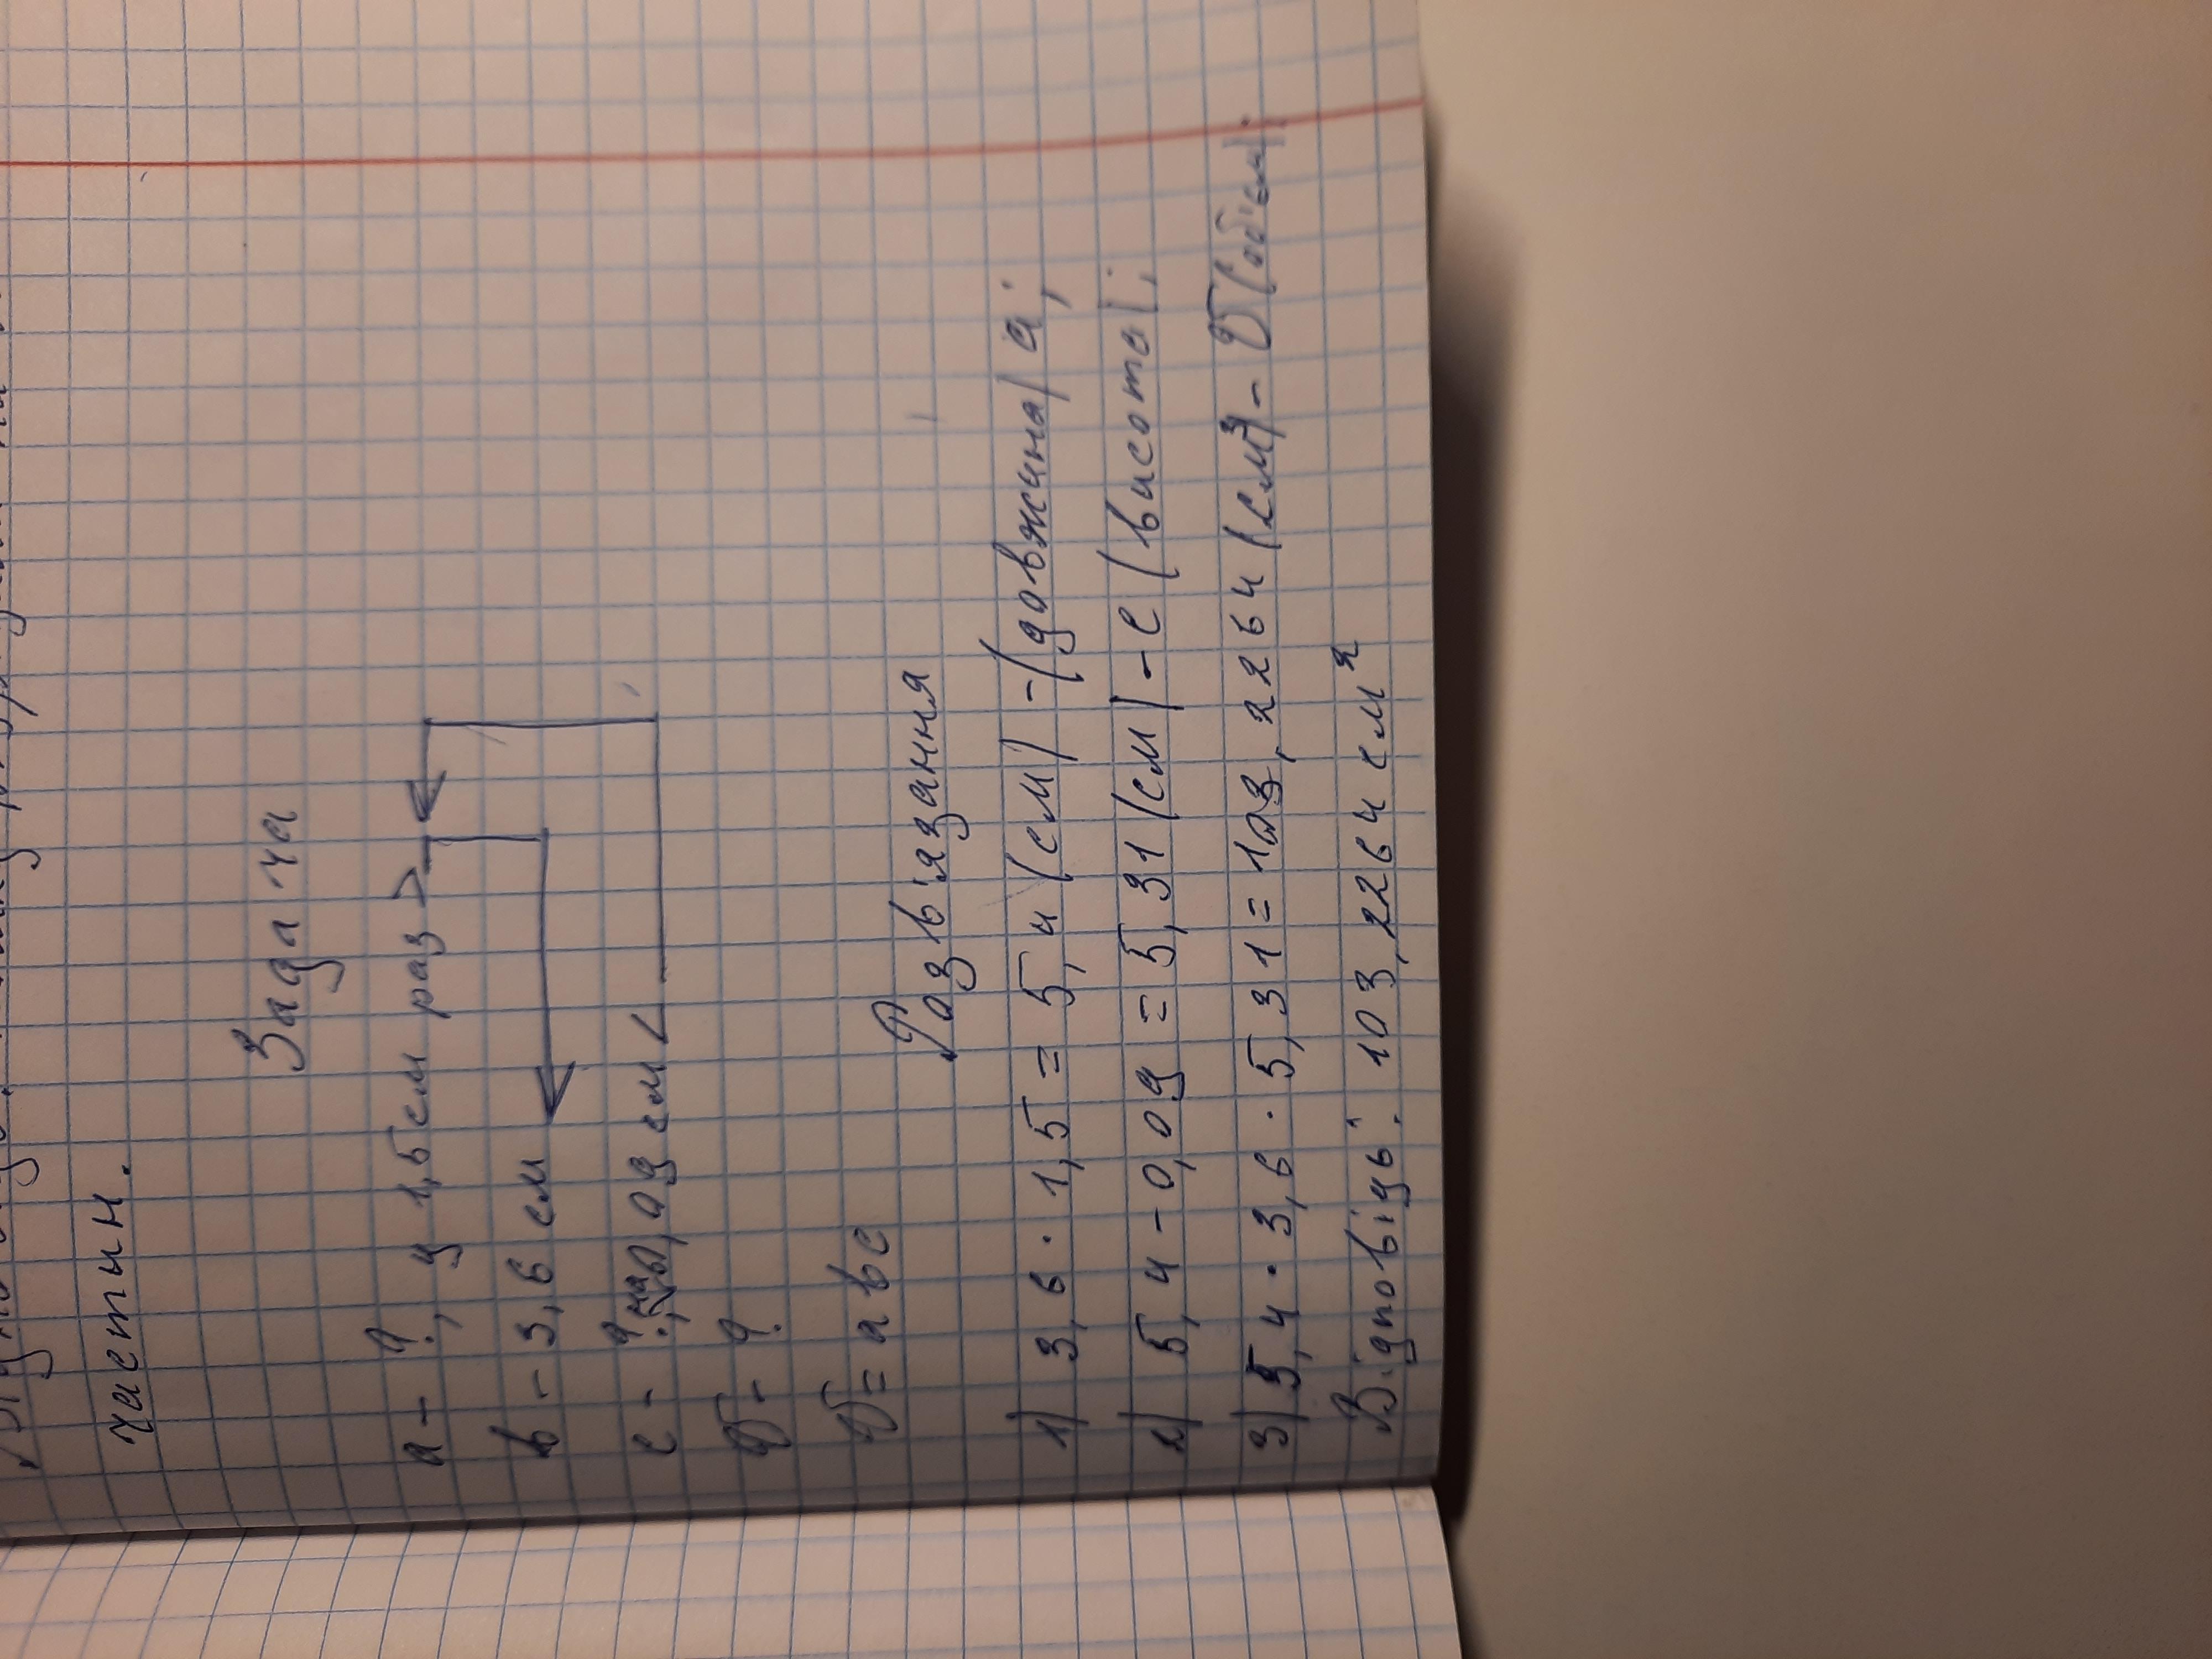 частин.
Задача
a - ?, у 1,5 см раз >
b - 3,6 см
c - ?, на 0,09 см <
V - ?
V = abc
Розв'язання
1) 3,6 · 1,5 = 5,4 (см) - (довжина) a;
2) 5,4 - 0,09 = 5,31 (см) - c (висота);
3) 5,4 · 3,6 · 5,31 = 103,2264 (см³) - V (об'єм);
Відповідь: 103,2264 см²